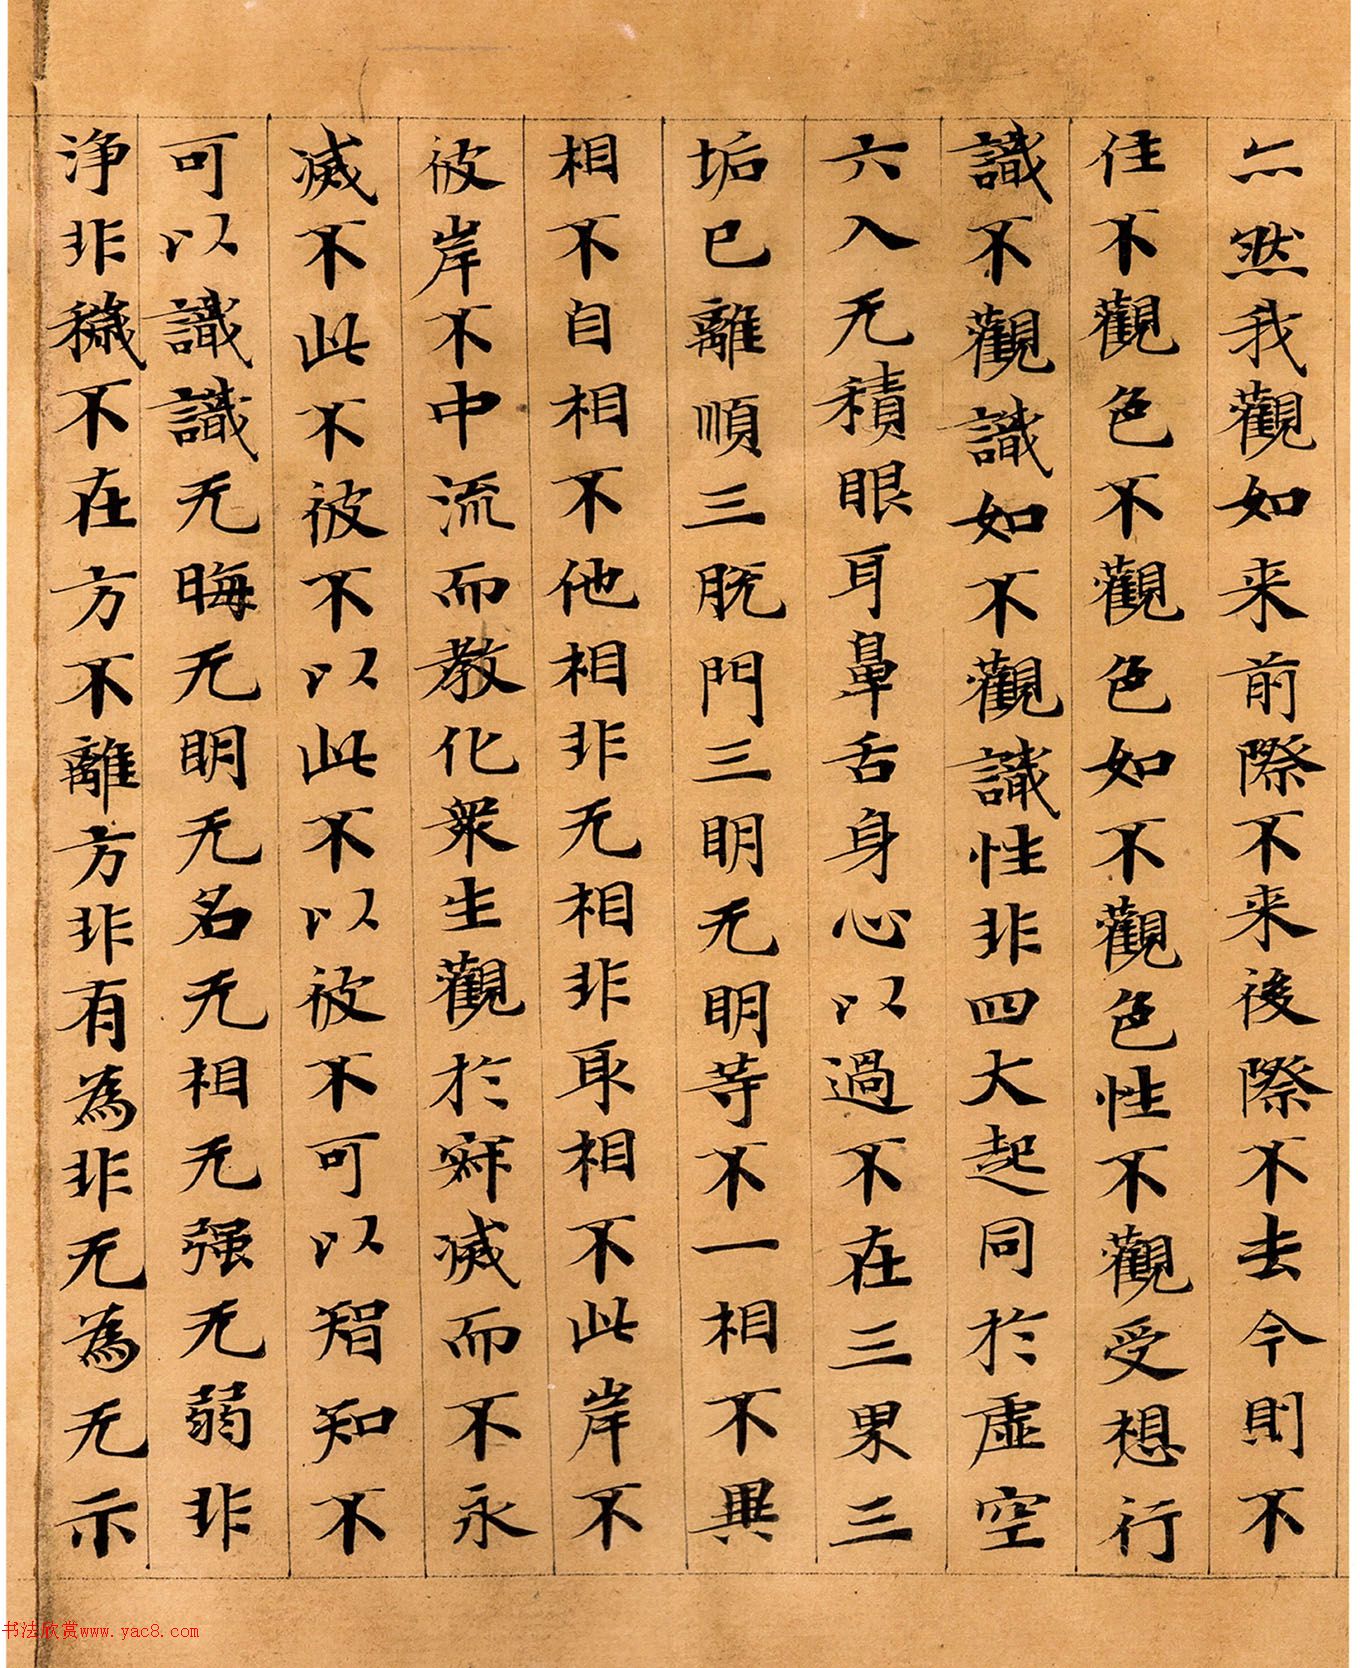 亦然我觀如来前際不来後際不去今則不
住不觀色不觀色如不觀色性不觀受想行
識不觀識如不觀識性非四大起同於虛空
六入无積眼耳鼻舌身心以過不在三界三
垢已離順三脫門三明无明等不一相不異
相不自相不他相非无相非取相不此岸不
彼岸不中流而教化衆生觀於寂滅而不永
滅不此不彼不以此不以彼不可以智知不
可以識識无晦无明无名无相无强无弱非
淨非穢不在方不離方非有為非无為无示
书法欣赏www.yac8.com